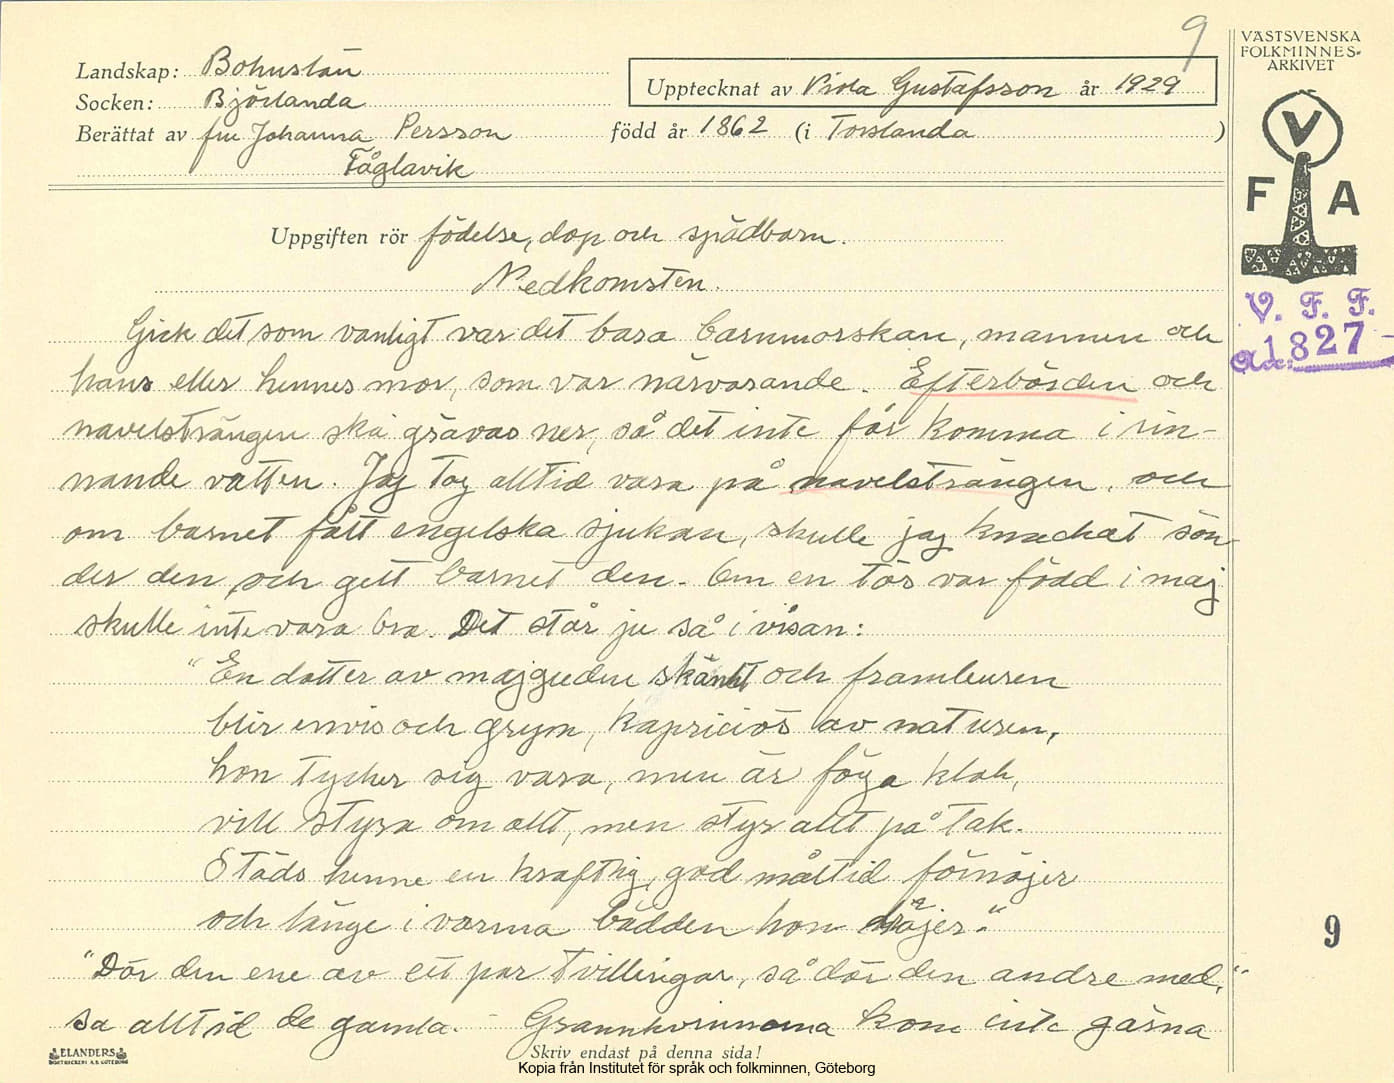 9
VÄSTSVENSKA
FOLKMINNES-
ARKIVET
Landskap: Bohuslän
Upptecknat av Viola Gustafsson år 1929
Socken: Björlanda
Berättat av fru Johanna Persson född år 1862 (i Torslanda )
Fåglavik
V
F A
Uppgiften rör födelse, dop och spädbarn.
Nedkomsten.
V. F. F.
Acc. 1827
Gick det som vanligt var det bara barnmorskan, mannen och
hans eller hennes mor, som var närvarande. Efterbörden och
navelsträngen ska grävas ner, så det inte får komma i rin-
nande vatten. Jag tog alltid vara på navelsträngen, och
om barnet fått engelska sjukan, skulle jag knackat sön-
der den, och gett barnet den. Om en tös var född i maj
skulle inte vara bra. Det står ju så i visan:
"En dotter av majguden skänkt och framburen
blir envis och grym, kapriciös av naturen,
hon tycker sig vara, men är föga klok,
vill styra om allt, men styr allt på tok.
Städs henne en kraftig, god måltid förnöjer
och länge i varma bädden hon dröjer."
"Dör den ene av ett par tvillingar, så dör den andre med,"
sa alltid de gamla. - Grannkvinnorna kom inte gärna
9
ELANDERS
BOKTRYCKERI A.B. GÖTEBORG
Skriv endast på denna sida!
Kopia från Institutet för språk och folkminnen, Göteborg